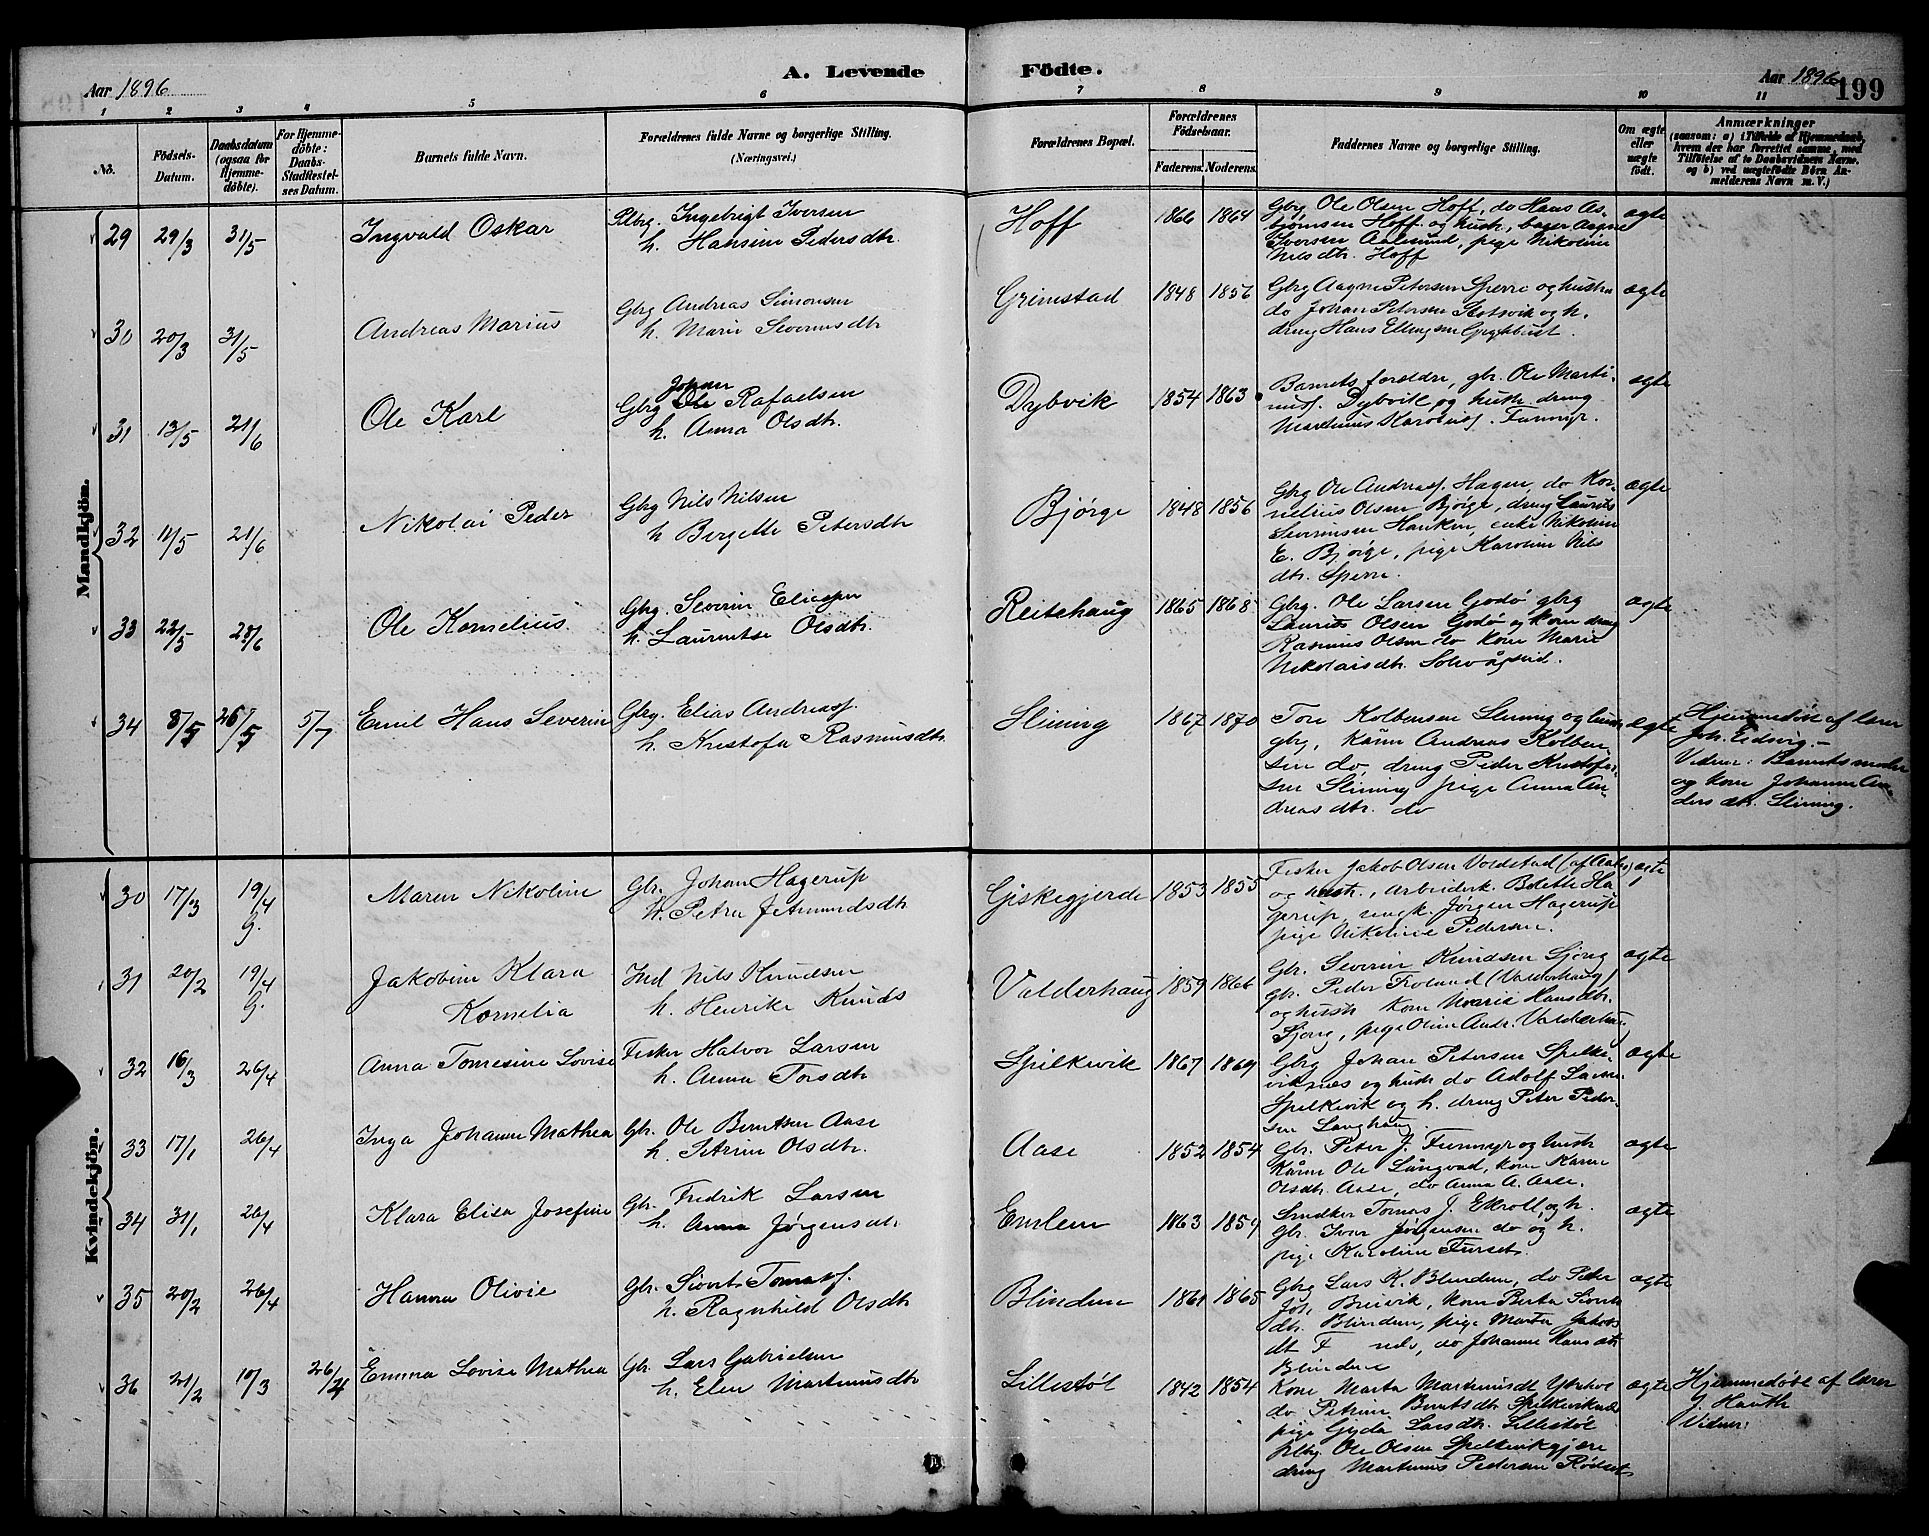 Aar 1896
A. Levende
Födte.
Aar 1896
199
1 2 3 4 5 6 7 8 9 10 11
No.
Födsels-
Datum.
Daabsdatum
(ogsaa for
Hjemme-
döbte).
For Hjemme-
döbte:
Daabs-
Stadfæstel-
ses Datum.
Barnets fulde Navn.
Forældrenes fulde Navne og borgerlige Stilling.
(Næringsvei.)
Forældrenes Bopæl.
Forældrenes
Födselsaar.
Faderens. Moderens.
Faddernes Navne og borgerlige Stilling.
Om ægte
eller
uægte
födt.
Anmærkninger
(saasom: a) i Tilfælde af Hjemmedaab,
hvem der har forrettet samme, med
Tilföielse af to Daabsvidners Navne,
og b) ved uægtefödte Börn An-
melderens Navn m. V.)
Mandkjön.
29 29/3 31/5 Ingvald Oskar
Plbrg. Ingebrigt Iversen
h. Hansine Pedersdtr.
Hoff 1866 1864
Gbrg Ole Olsen Hoff, do Hans As-
bjørnsen Hoff og hustr, bager Aagne
Iversen Aalesund, pige Nikoline
Nilsdtr. Hoff
ægte
30 20/3 31/5 Andreas Marius
Gbrg Andreas Simonsen
h. Marie Severinsdtr
Grimstad 1848 1856
Gbrg Aagne Petersen Sperre og hustru
do Johan Petersen Flotsvik og h.
dreng Hans Ellingsen
ægte
31 13/5 21/6 Ole Karl
Johan
Gbrg Ole Rafaelsen
h. Anna Olsdtr.
Dybvik 1854 1863
Barnets forældre, gbr. Ole Marti-
nus. Dybvik og hustr. dreng
Martinus
ægte
32 11/5 21/6 Nikolai Peder
Gbrg Nils Nilsen
h Bergette Petersdtr
Bjørge 1848 1856
Gbrg Ole Andreas. Hagen, do Kor-
nelius Olsen Bjørge, dreng Laurits
Severinsen Hanken, enke Nikoline
E. Bjørge, pige Karoline Nils
dtr. Sperre.
ægte
33 22/5 28/6 Ole Kornelius.
Gbrg. Severin Eliasen
h. Laurentse Olsdtr.
Reitehaug 1865 1868
Gbrg. Ole Larsen Godø gbrg
Laurits Olsen Godø og kone dreng
Rasmus Olsen do kone Marie
Nikolaisdtr.
ægte
34 8/5 26/5 5/7 Emil Hans Severin
Gbrg. Elias Andreas.
h. Kristofa Rasmusdtr.
Slining 1867 1870
Tore Kolbensen Slining og hustr.
gbrg. kaarm Andreas Kolben-
sen do, dreng Peder Kristofer-
sen Slining pige Anna An-
dreasdtr. do
ægte
Hjemmedøbt af lærer
Joh. Eidsvig.-
Vidner: Barnets moder
og kone Johanne An-
dersdtr. Slining.
Kvindekjön.
30 17/3 19/4 G. Maren Nikoline
Gbr. Johan Hagerup
h. Petra J Amundsdtr
Giskegjerde 1853 1855
Fisker Jakob Olsen Voldstad
og hustr., Arbeiderk. Bolette Ha-
gerup, ungk. Jørgen Hagerup
pige Nikoline Pedersen.
ægte
31 20/2 19/4 G. Jakobine Klara
Kornelia
Ind Nils Knudsen
h. Henrike Knuds
Valderhaug 1859 1866
Gbr. Severin Knudsen Sjong
Gbr. Peder Froland (Valderhaug)
og hustr kone Marie Hansdtr.
Sjong, pige Oline Andr. Valderhau
ægte
32 16/3 26/4 Anna Tomesine Lovise
Fisker Halvor Larsen
h. Anna Torsdtr
Spilkevik 1867 1869
Gbrg Johan Petersen Spilke-
viknes og hustr do Adolf Larsen
Spilkevik og h. dreng Peter Peder-
sen Langhaug.
ægte
33 17/1 26/4 Inga Johanne Mathea
Gbr. Ole Berntsen Aase
h. Petrine Olsdtr.
Aase 1852 1854
Gbr. Peter J. Furmyr og hustr
Kårm Ole Langvad, kone Karen
Olsdtr. Aase, do Anna A. Aase.
ægte
34 31/1 26/4 Klara Elisa Josefine
Gbr. Fredrik Larsen
h. Anna Jørgensdtr.
Emlem 1863 1859
Snedker Tomas J. Ekroll, og h.
Gbr. Iver Jørgensen do og h.
pige Karoline Furset.
ægte
35 20/2 26/4 Hanna Olivie
Gbr. Sivert Tomas.
h. Ragnhild Olsdtr
Blindem 1861 1865
Gbrg Lars K. Blindem, do Peter
Joh. Breivik, kone Berta Siverts
dtr. Blindem, pige Marta Jakobs
dtr F do Johanne Hansdtr
Blindem
ægte
36 21/2 10/3 26/4 Emma Lovise Mathea
Gbr. Lars Gabrielsen
h. Elen Martinusdtr
Lillestøl 1842 1854
Kone Marta Martinusdtr
do Petrine Berntsdtr Spilkeviknes
pige Gyda Larsdtr. Lillestøl
plbg. Ole Olsen Spilkevikgjære
dreng Martinus Pedersen Rødset
ægte
Hjemmedøbt af lærer
J. Havth
Vidner: